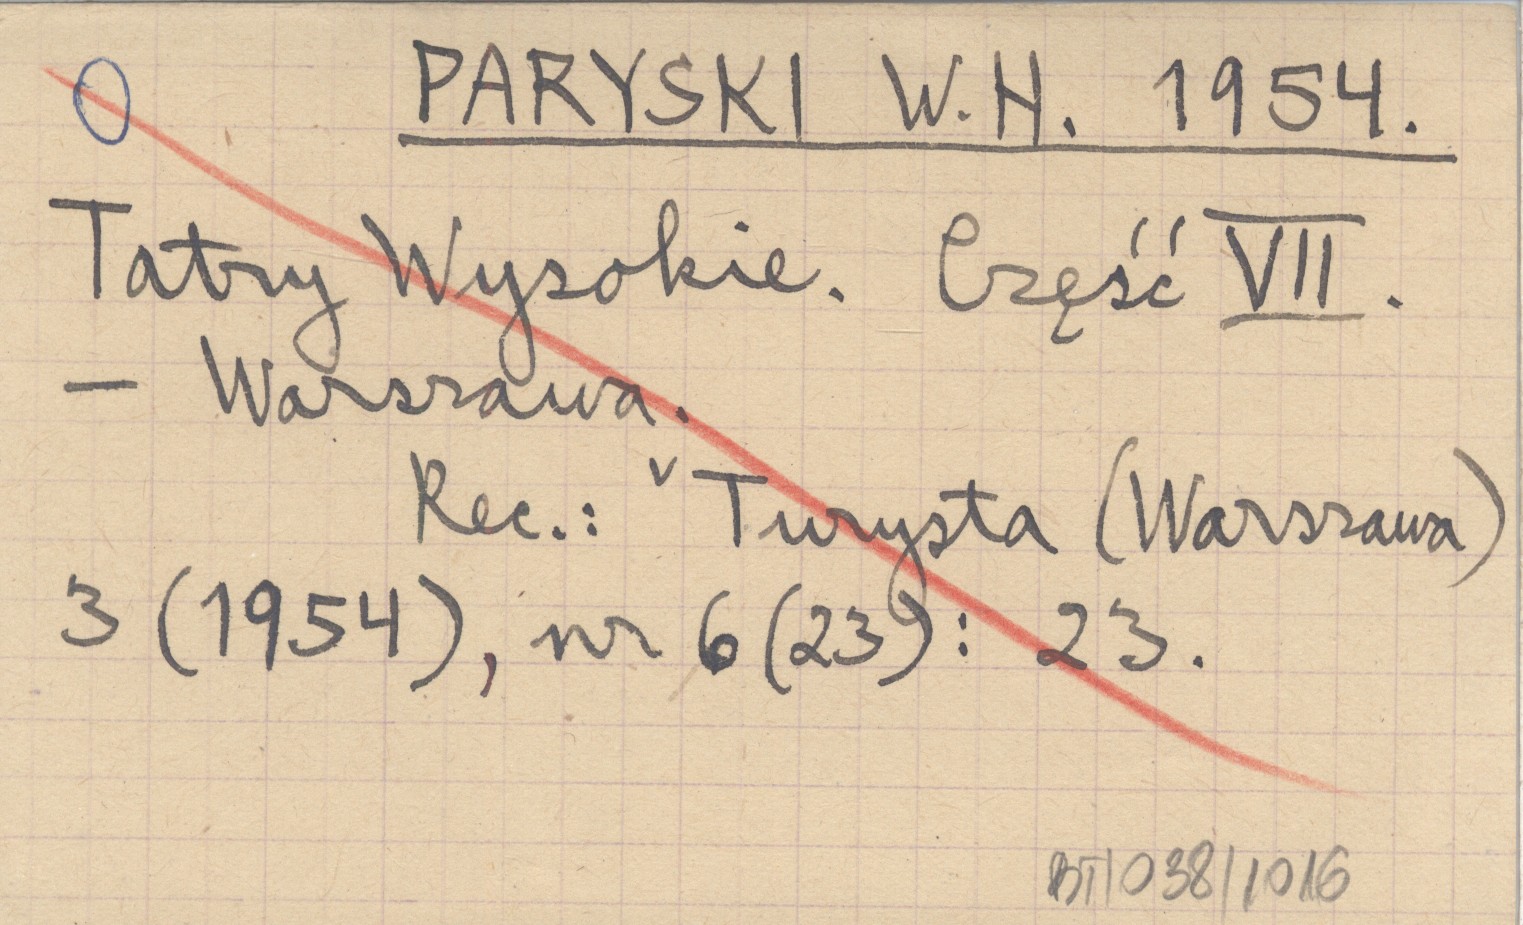 O PARYSKI W.H. 1954.
Tatry Wysokie. Część VII.
– Warszawa.
Rec.: ˅ Turysta (Warszawa)
3 (1954), nr 6 (23): 23.
BT/038/1016